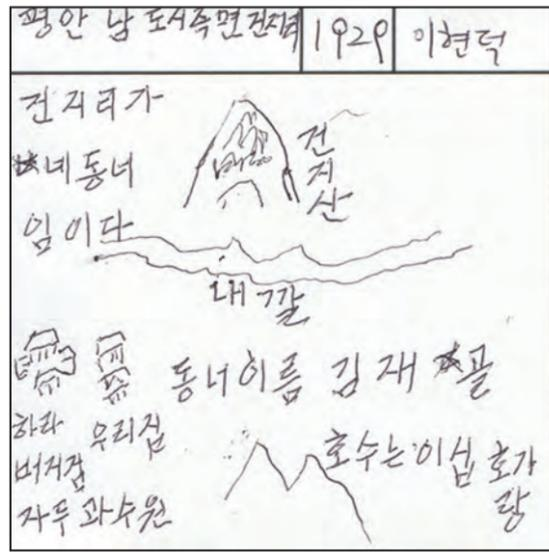 평안남도시족면건지리 1929 이현덕
건지리가
네동너
임이다
건지산
내깔
동너이름 김재골
하라버지집
우리집
자두과수원
호수는이십호가량